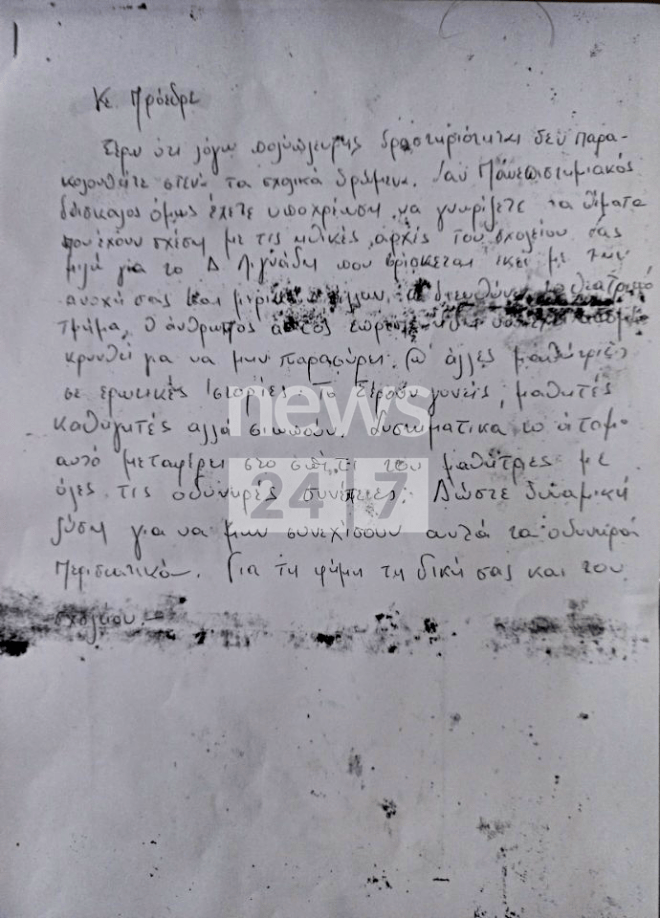 Κε Πρόεδρε
Ξέρω ότι λόγω πολύπλευρης δραστηριότητας δεν παρα-
κολουθείτε στενά τα σχολικά δρώμενα. Σαν Πανεπιστημιακός
δάσκαλος όμως έχετε υποχρέωση να γνωρίζετε τα θέματα
που έχουν σχέση με τις ηθικές αρχές του σχολείου σας
μιλώ για το Δ. Λιγνάδη που βρίσκεται εκεί με την
ανοχή σας και μερικών άλλων διευθύνει το θεατρικό
τμήμα. Ο άνθρωπος αυτός
κρυνθεί για να μην παρασύρει άλλες μαθήτριες
σε ερωτικές ιστορίες. Το ξέρουν γονείς, μαθητές
καθηγητές αλλά σιωπούν. Δυστυχώς το άτομο
αυτό μεταφέρει στο σπίτι του μαθήτρες με
όλες τις οδυνηρές συνέπειες. Δώστε δυναμική
λύση για να μην συνεχίσουν αυτά τα οδυνηρά
περιστατικά. Για τη φήμη τη δική σας και του
σχολείου.-
news
24 7